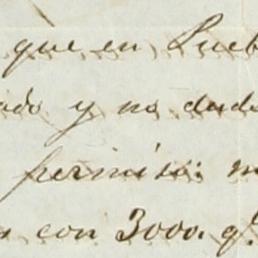 que en Pueb
ado y no dudo
permiso: m
con 3000. q.